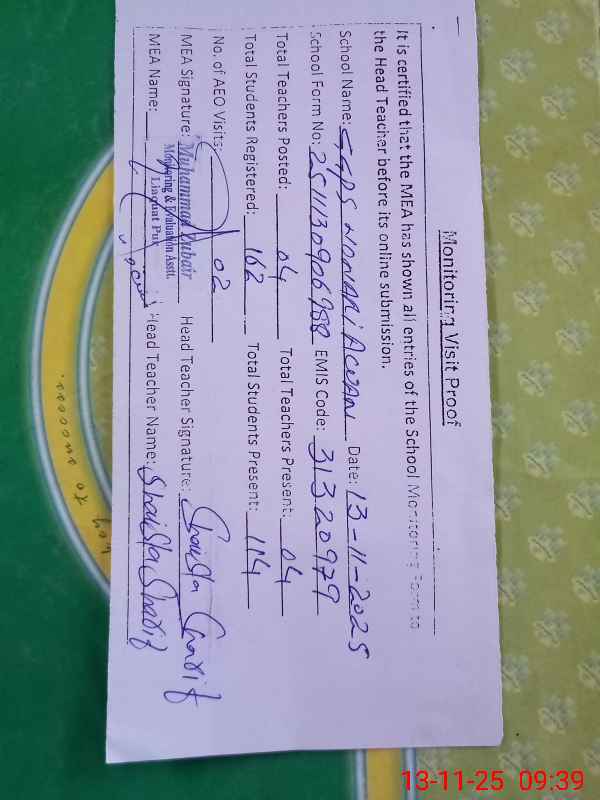 Monitoring Visit Proof
It is certified that the MEA has shown all entries of the School Monitoring Form to
the Head Teacher before its online submission.
School Name: GGPS Date: 13-11-2025
School Form No: 2511130906988 EMIS Code: 31320979
Total Teachers Posted: 04 Total Teachers Present: 04
Total Students Registered: 162 Total Students Present: 114
No. of AEO Visits: 02
MEA Signature: Head Teacher Signature: Shaista Sharif
Muhammad Zubair
Monitoring & Evaluation Asstt.
Liaquat Pur
MEA Name: Head Teacher Name: Shaista Sharif
key to success.
13-11-25 09:39